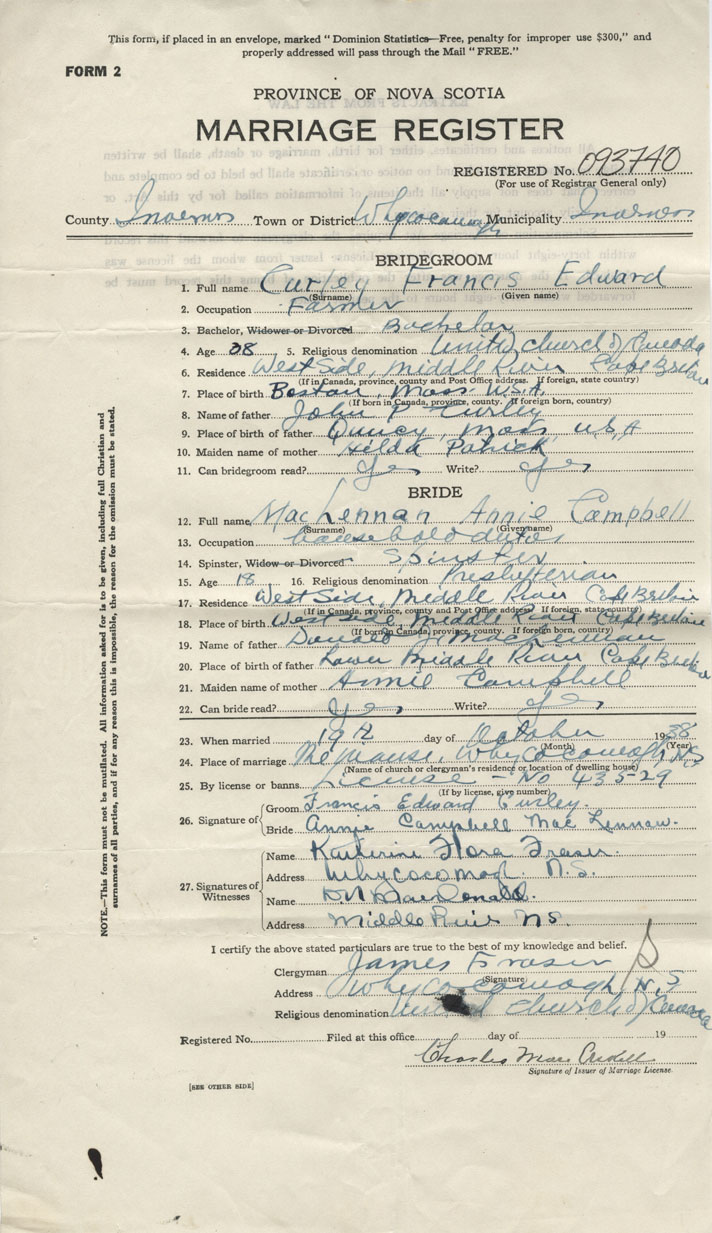 This form, if placed in an envelope, marked "Dominion Statistics—Free, penalty for improper use $300," and
properly addressed will pass through the Mail "FREE."
FORM 2
PROVINCE OF NOVA SCOTIA
MARRIAGE REGISTER
REGISTERED No. 093740
(For use of Registrar General only)
County Inverness Town or District Whycocomagh Municipality Inverness
BRIDEGROOM
1. Full name Curley Francis Edward
(Surname) (Given name)
2. Occupation Farmer
3. Bachelor, Widower or Divorced Bachelor
4. Age 28 5. Religious denomination United Church of Canada
6. Residence West Side, Middle River Cape Breton
(If in Canada, province, county and Post Office address. If foreign, state country)
7. Place of birth Boston, Mass U.S.A.
(If born in Canada, province, county. If foreign born, country)
8. Name of father John P Curley
9. Place of birth of father Quincy, Mass U.S.A
10. Maiden name of mother Hilda Patrick
11. Can bridegroom read? Yes Write? Yes
BRIDE
12. Full name MacLennan Annie Campbell
(Surname) (Given name)
13. Occupation household duties
14. Spinster, Widow or Divorced Spinster
15. Age 18 16. Religious denomination Presbyterian
17. Residence West Side, Middle River Cape Breton
(If in Canada, province, county and Post Office address. If foreign, state country)
18. Place of birth West side, Middle River Cape Breton
(If born in Canada, province, county. If foreign born, country)
19. Name of father Donald J. MacLennan
20. Place of birth of father Lower Middle River Cape Breton
21. Maiden name of mother Annie Campbell
22. Can bride read? Yes Write? Yes
23. When married 19th day of October 1938
(Month) (Year)
24. Place of marriage The manse, Whycocomagh, N.S
(Name of church or clergyman's residence or location of dwelling house)
25. By license or banns License - No 43529
(If by license, give number)
26. Signature of Groom Francis Edward Curley.
Bride Annie Campbell Mac Lennan.
27. Signatures of Witnesses
Name Katherine Flora Fraser.
Address Whycocomagh. N.S.
Name D.N MacDonald.
Address Middle River N.S.
I certify the above stated particulars are true to the best of my knowledge and belief.
Clergyman James Fraser
(Signature)
Address Whycocomagh N.S
Religious denomination United Church of Canada
Registered No. Filed at this office day of 19
Charles Mac
Signature of Issuer of Marriage License.
[SEE OTHER SIDE]
NOTE.—This form must not be mutilated. All information asked for is to be given, including full Christian and
surnames of all parties, and if for any reason this is impossible, the reason for the omission must be stated.